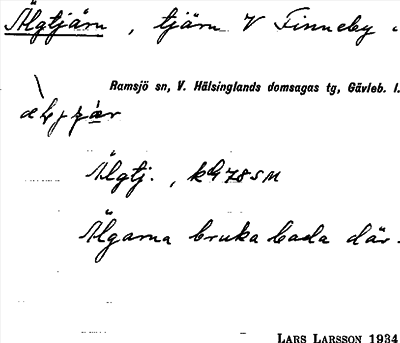 Älgtjärn, tjärn V Finneby.
Ramsjö sn, V. Hälsinglands domsagas tg, Gävleb. l.
Älgtj., kbl 78 SM
Älgarna bruka bada där.
LARS LARSSON 1934